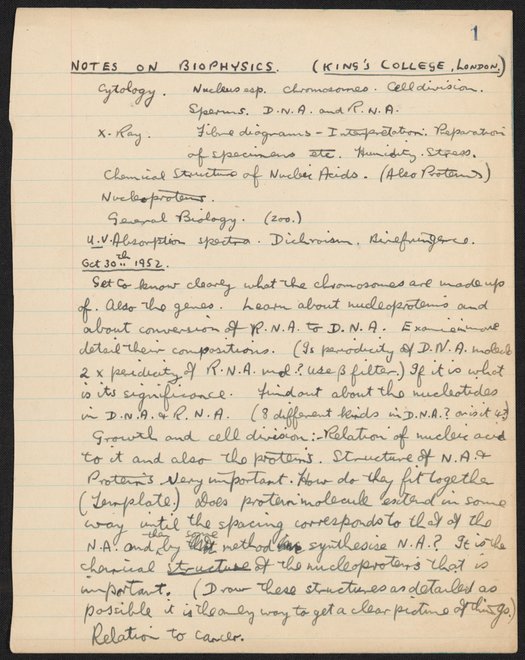 1
NOTES ON BIOPHYSICS. (KING'S COLLEGE, LONDON,)
Cytology. Nucleus esp. chromosomes. Cell division.
Sperms. D.N.A. and R.N.A.
X-Ray. Fibre diagrams - Interpretation. Preparation
of specimens etc. Humidity. Stress.
Chemical Structure of Nucleic Acids. (Also Proteins)
Nucleoproteins.
General Biology. (zoo.)
U.V. Absorption spectra. Dichroism. Birefringence.
Oct 30th 1952.
Get to know clearly what the chromosomes are made up
of. Also the genes. Learn about nucleoproteins and
about conversion of R.N.A. to D.N.A. Examine in more
detail their compositions. (Is periodicity of D.N.A. molecule
2 x periodicity of R.N.A. mol.? use β filter.) If it is what
is its significance. Find out about the nucleotides
in D.N.A. & R.N.A. (8 different kinds in D.N.A.? or is it 4?)
Growth and cell division:- Relation of nucleic acid
to it and also the proteins. Structure of N.A. &
Proteins very important. How do they fit together
(Template.) Does protein molecule extend in some
way until the spacing corresponds to that of the
N.A. and then by some method synthesise N.A.? It is the
chemical structure of the nucleoproteins that is
important. (Draw these structures as detailed as
possible it is the only way to get a clear picture of things.)
Relation to cancer.